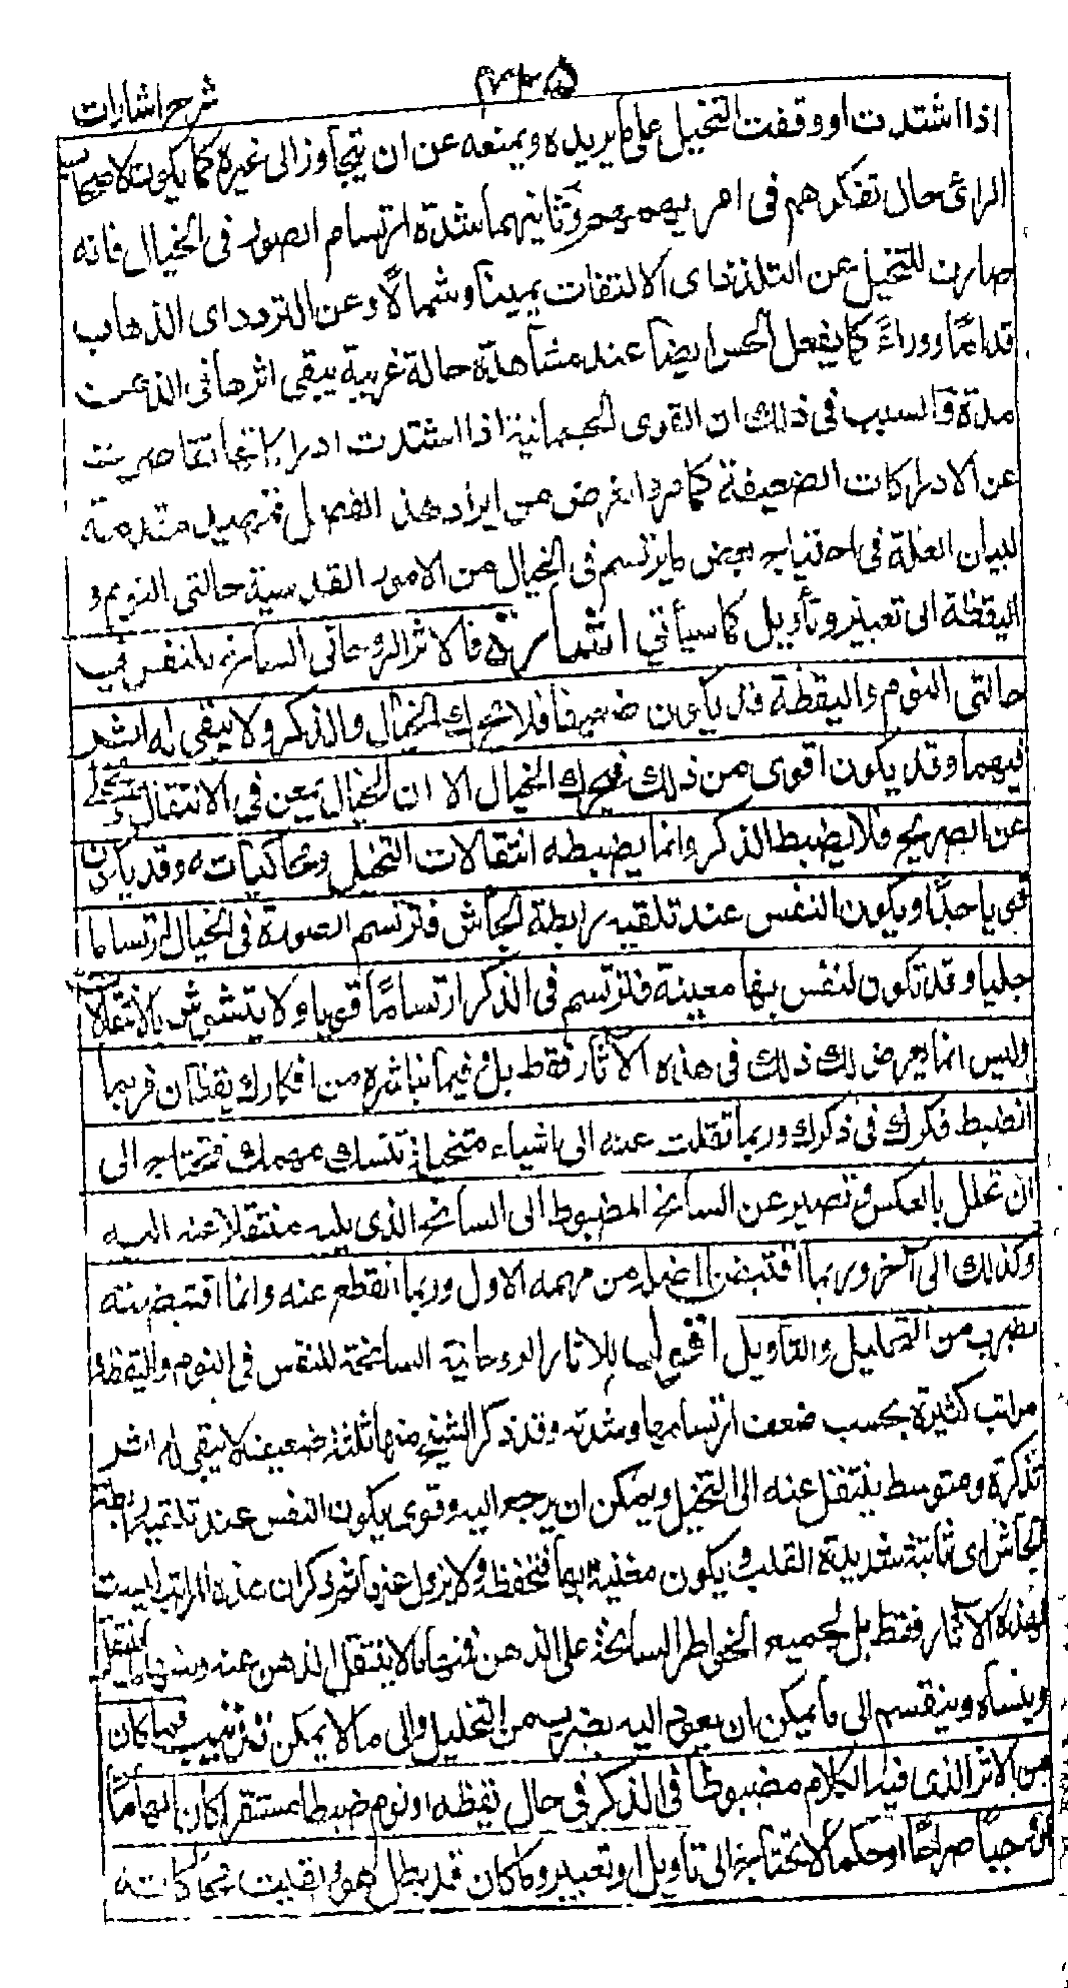 شرح اشارات
اذا اشتدت او وقفت التخيل على ما يريده ويمنعه عن ان يتجاوز الى غيره كما يكون لاصحاب
الرائ حال تفكرهم فى امر يهمهم وثانيهما شدة ارتسام الصور فى الخيال فانه
صارف للتخيل عن التلذذ اى الالتفات يمينا وشمالا وعن التردد اى الذهاب
قداما ووراءً كما يفعل الحس ايضا عند مشاهدة حالة غريبة يبقى اثرها فى الذهن
مدة والسبب فى ذلك ان القوى الجسمانية اذا اشتدت ادراكاتها تقاصرت
عن الادراكات الضعيفة كما مر والغرض من ايراد هذا الفصل تمهيد مقدمة
لبيان العلة فى احتياج بعض ما يرتسم فى الخيال من الامور القدسية حالتى النوم و
اليقظة الى تعبير وتأويل كما سيأتي اشارة فالاثر الروحانى السانح للنفس فى
حالتى النوم واليقظة قد يكون ضعيفا فلا يحرك الخيال والذكر ولا يبقى له اثر
فيهما وقد يكون اقوى من ذلك فيحرك الخيال الا ان الخيال يمعن فى الانتقال ويخلى
عن الصريح فلا يضبط الذكر وانما يضبطه انتقالات التخيل ومحاكياته وقد يكون
قويا جدًّا ويكون النفس عند تلقيه رابطة الجاش فترتسم الصورة فى الخيال ارتساما
جليا وقد تكون لنفس بها معينة فترتسم فى الذكر ارتسامًا قويا ولا يتشوش بالانتقالات
وليس انما يعرض لك ذلك فى هذه الآثار فقط بل وفيما تباشره من افكارك يقظان فربما
انضبط فكرك فى ذكرك وربما نقلت عنه الى اشياء متخيلة تنسك مهمك فتحتاج الى
ان تحلل بالعكس وتصير عن السانح المضبوط الى السانح الذى يليه منتقلا عنه اليه
وكذلك الى آخر وربما اقتبض ما اضله من مهمه الاول وربما انقطع عنه وانما اقتبضه
بضرب من التحليل والتأويل اقول للاثار الروحانية السانحة للنفس فى النوم واليقظة
مراتب كثيرة بحسب ضعف ارتسامها وشدته وقد ذكر الشيخ منها ثلثة ضعيف لا يبقى له اثر
تذكره ومتوسط ينتقل عنه الى التخيل ويمكن ان يرجع اليه وقوى يكون النفس عند تلقيه رابطة
الجاش اى ثابتة شديدة القلب ويكون معنية بها فتحفظه ولا يزول عنها ثم ذكر ان هذه المراتب ليست
لهذه الآثار فقط بل لجميع الخواطر السانحة على الذهن فمنها ما لا ينتقل الذهن عنه ومنها ما ينتقل
وينساه وينقسم الى ما يمكن ان يعود اليه بضرب من التحليل والى ما لا يمكن تذنيب فما كان
من الاثر الذى فيه الكلام مضبوطا فى الذكر فى حال يقظة او نوم ضبطا مستقرا كان الهاما
او وحيا صراحا او حلما لا يحتاج الى تأويل او تعبير وما كان قد بطل هو وبقيت محاكاته